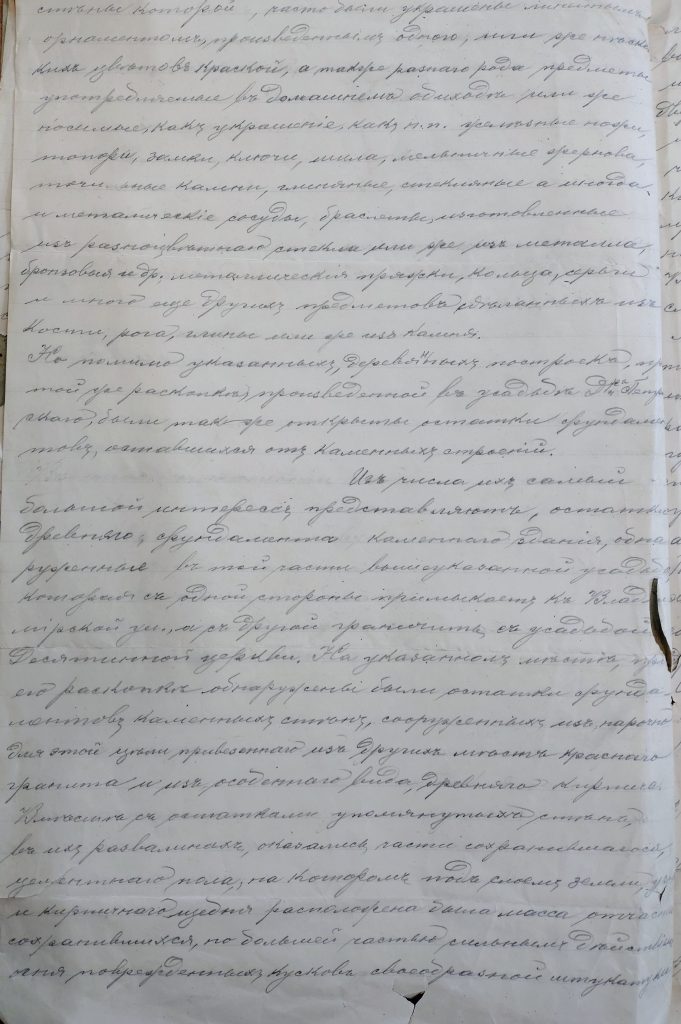 стѣны которой, часто были украшены линейнымъ
орнаментомъ, произведеннымъ одною, или же нѣсколь-
кихъ цвѣтовъ краской, а также разнаго рода предметы
употребляемые въ домашнемъ обиходѣ или же
носимые, какъ украшеніе, какъ н.п. желѣзные ножи,
топоры, замки, ключи, шила, мельничные жернова,
точильные камни, глиняные, стекляные а иногда
и металическіе сосуды, браслеты, изготовленные
изъ разноцвѣтнаго стекла или же изъ металла,
бронзовыя и др. металлическія пряжки, кольца, серьги
и много еще другихъ предметовъ сдѣланныхъ изъ
кости, рога, глины или же изъ камня.
Но помимо указанныхъ деревянныхъ построекъ, при
той же раскопкѣ, произведенной въ усадьбѣ Петров-
скаго, были так-же открыты остатки фундамен-
товъ, оставшихся отъ каменныхъ строеній.
Изъ числа ихъ самый
большой интересъ представляютъ, остатки
древняго фундамента каменнаго зданія, обна-
руженные въ той части вышеуказанной усадьбы,
которая съ одной стороны примыкаетъ къ Влади-
мірской ул., а съ другой граничитъ съ усадьбой
Десятинной церкви. На указанномъ мѣстѣ, при
его раскопкѣ обнаружены были остатки фунда-
ментовъ каменныхъ стѣнъ, сооруженныхъ изъ нарочно
для этой цѣли привезеннаго изъ другихъ мѣстъ краснаго
гранита и изъ особеннаго вида, древняго кирпича.
Вмѣстѣ съ остатками упомянутыхъ стѣнъ,
въ ихъ развалинахъ, оказались части сохранившагося,
цементнаго пола, на которомъ подъ слоемъ земли,
и кирпичнаго щебня расположена была масса отчасти
сохранившихся, но большей частью сильнымъ дѣйствіемъ
огня поврежденныхъ кусковъ своеобразной штукатурки